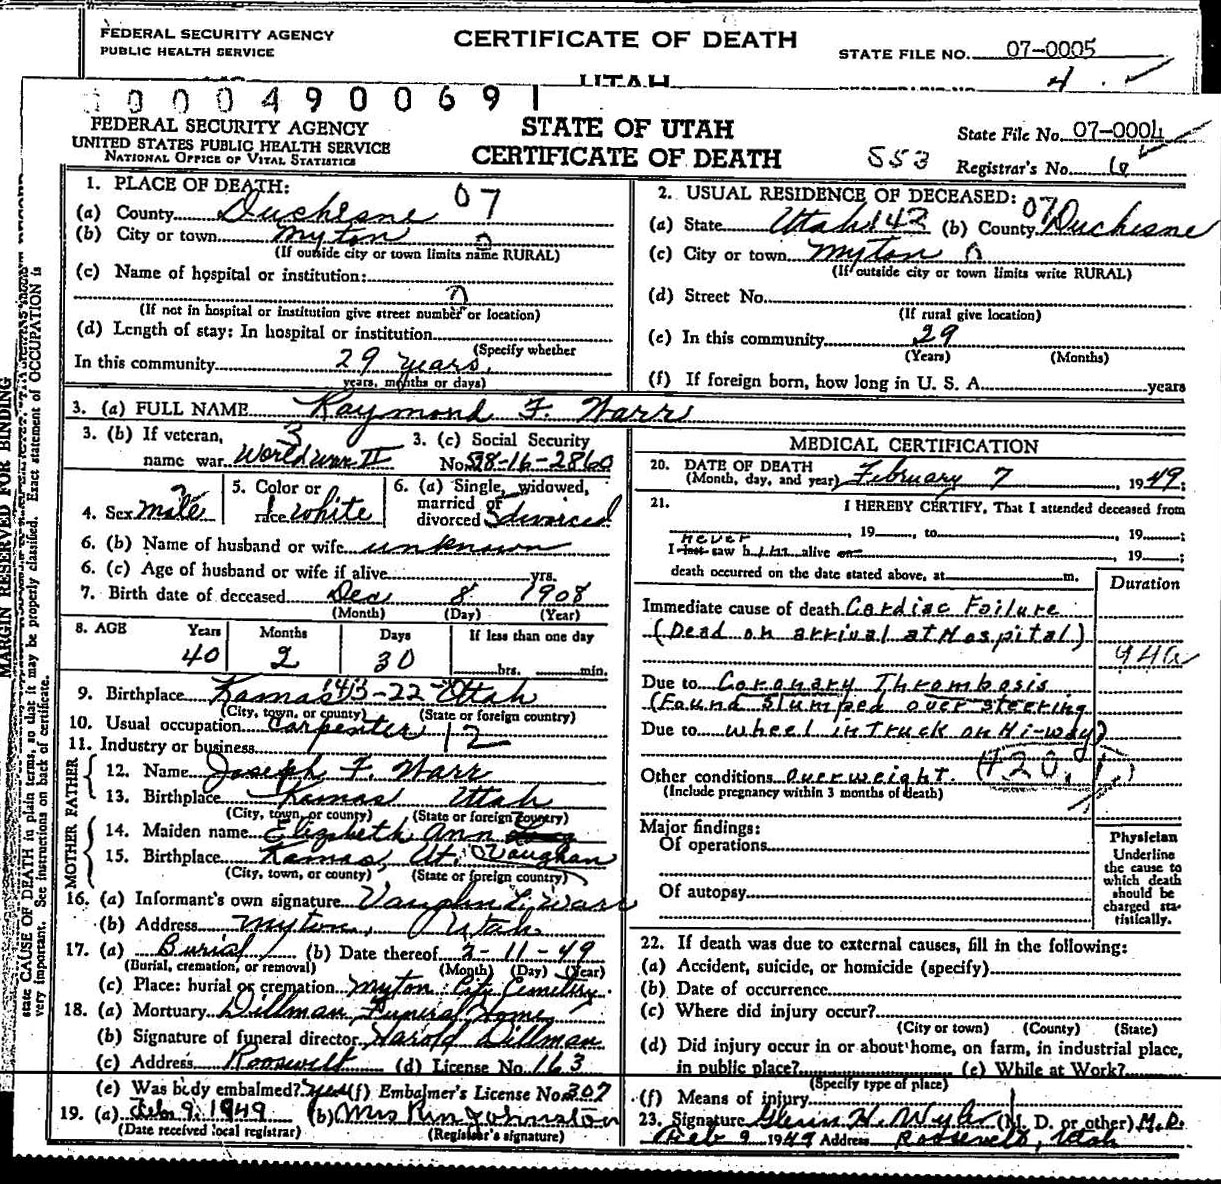 FEDERAL SECURITY AGENCY
PUBLIC HEALTH SERVICE
CERTIFICATE OF DEATH
STATE FILE NO. 07-0005
UTAH
4
0 0 0 4 9 0 0 6 9 1
FEDERAL SECURITY AGENCY
UNITED STATES PUBLIC HEALTH SERVICE
NATIONAL OFFICE OF VITAL STATISTICS
STATE OF UTAH
CERTIFICATE OF DEATH
553
State File No. 07-0004
Registrar's No.
MARGIN RESERVED FOR BINDING
state CAUSE OF DEATH in plain terms, so that it may be properly classified. Exact statement of OCCUPATION is
very important. See instructions on back of certificate.
1. PLACE OF DEATH: 07
(a) County Duchesne
(b) City or town Myton
(If outside city or town limits name RURAL)
(c) Name of hospital or institution:
(If not in hospital or institution give street number or location)
(d) Length of stay: In hospital or institution
(Specify whether
In this community 29 years,
years, months or days)
2. USUAL RESIDENCE OF DECEASED: 07
(a) State Utah 43 (b) County Duchesne
(c) City or town Myton
(If outside city or town limits write RURAL)
(d) Street No.
(If rural give location)
(e) In this community 29
(Years) (Months)
(f) If foreign born, how long in U. S. A. years
3. (a) FULL NAME Raymond F. Warr
3. (b) If veteran, 3
name war World War II
3. (c) Social Security
No. 528-16-2860
4. Sex male
5. Color or
race 1 White
6. (a) Single, widowed,
married or
divorced 5 divorced
6. (b) Name of husband or wife unknown
6. (c) Age of husband or wife if alive yrs.
7. Birth date of deceased Dec 8 1908
(Month) (Day) (Year)
8. AGE Years Months Days If less than one day
40 2 30 hrs. min.
9. Birthplace Kamas Utah
(City, town, or county) (State or foreign country)
10. Usual occupation Carpenter 12
11. Industry or business
FATHER
12. Name Joseph F. Warr
13. Birthplace Kamas Utah
(City, town, or county) (State or foreign country)
MOTHER
14. Maiden name Elizabeth Ann Vaughan
15. Birthplace Kamas, Ut.
(City, town, or county) (State or foreign country)
16. (a) Informant's own signature Vaughn L. Warr
(b) Address Myton, Utah
17. (a) Burial (b) Date thereof 2-11-49
(Burial, cremation, or removal) (Month) (Day) (Year)
(c) Place: burial or cremation Myton City Cemetery.
18. (a) Mortuary Dillman Funeral Home
(b) Signature of funeral director Harold Dillman
(c) Address Roosevelt (d) License No. 163
(e) Was body embalmed? yes (f) Embalmer's License No. 307
19. (a) Feb 9, 1949 (b) Mrs Johnston
(Date received local registrar) (Registrar's signature)
MEDICAL CERTIFICATION
20. DATE OF DEATH
(Month, day, and year) February 7, 1949;
21. I HEREBY CERTIFY, That I attended deceased from
, 19 , to , 19 ;
never
I last saw him alive on , 19 ;
death occurred on the date stated above, at m.
Duration
Immediate cause of death Cardiac Failure
(Dead on arrival at Hospital)
94a
Due to Coronary Thrombosis
(Found slumped over steering
Due to wheel in Truck on Hi-way)
Other conditions overweight. 420.1
(Include pregnancy within 3 months of death)
Major findings:
Of operations
Of autopsy
Physician
Underline
the cause to
which death
should be
charged sta-
tistically.
22. If death was due to external causes, fill in the following:
(a) Accident, suicide, or homicide (specify)
(b) Date of occurrence
(c) Where did injury occur?
(City or town) (County) (State)
(d) Did injury occur in or about home, on farm, in industrial place,
in public place? (e) While at Work?
(Specify type of place)
(f) Means of injury
23. Signature (M. D. or other) M.D.
Feb 9 1949 Address Roosevelt, Utah